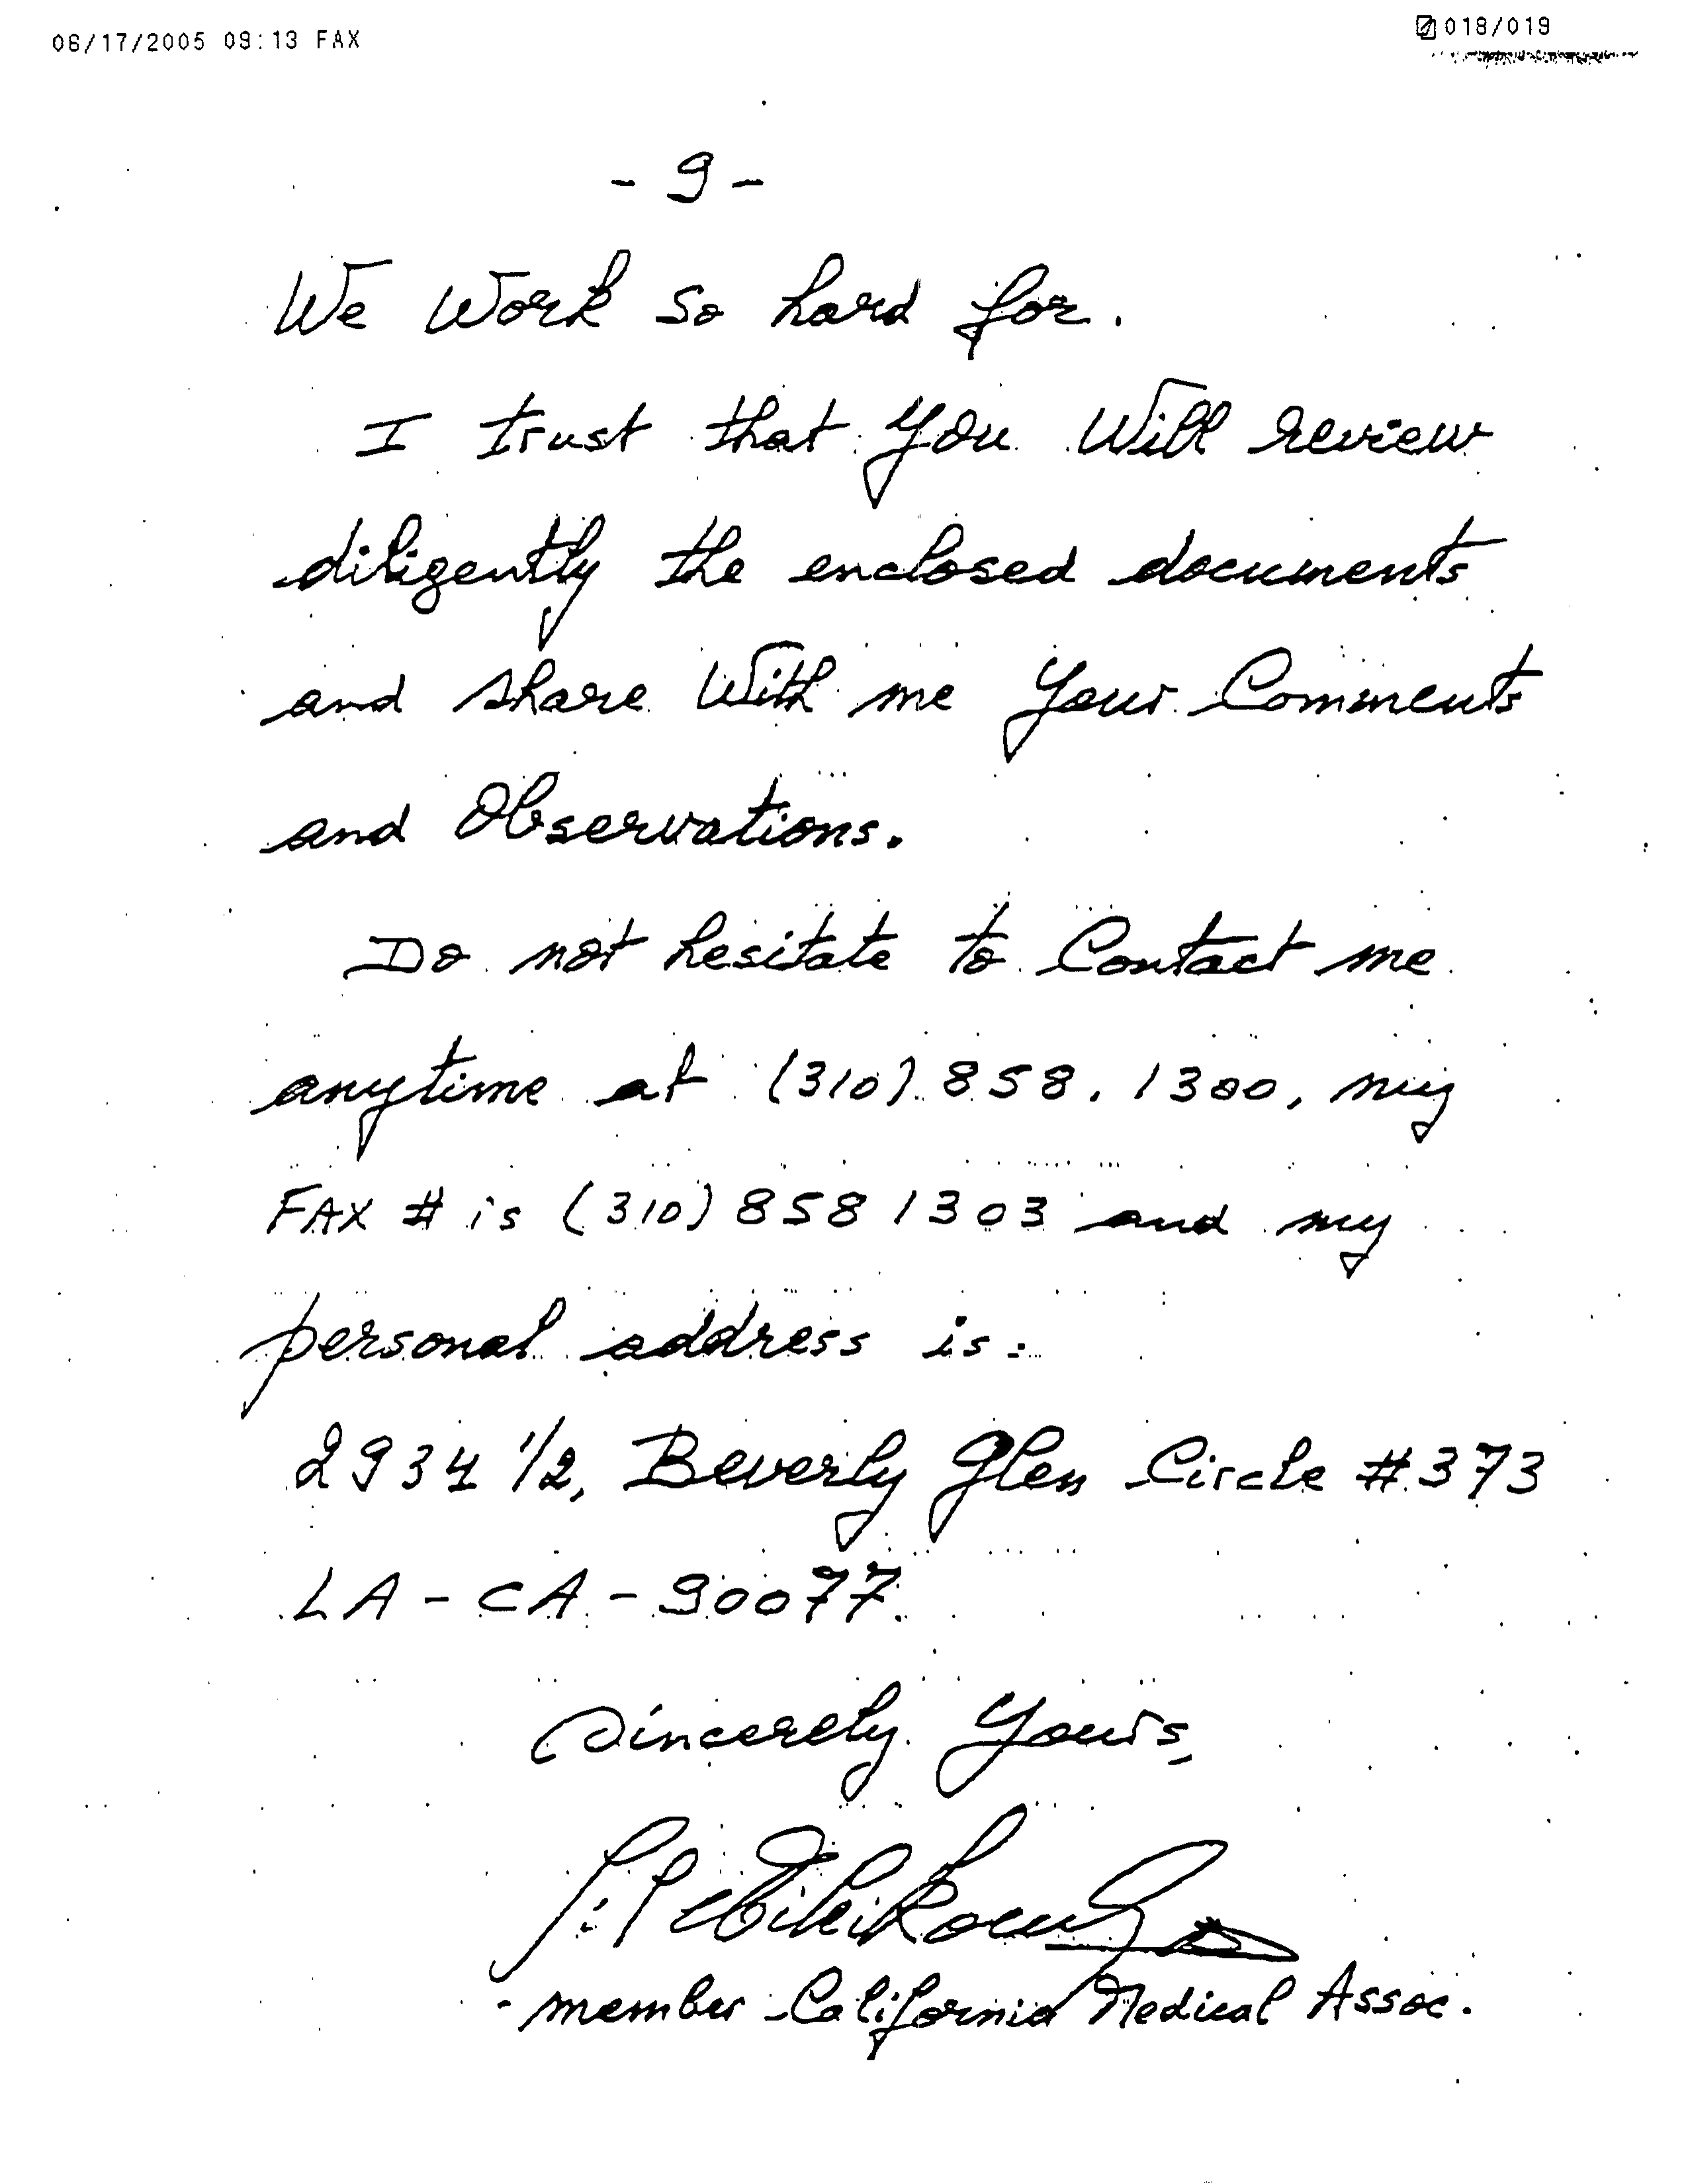 06/17/2005 09:13 FAX
018/019
- 9 -
We Work so hard for.
I trust that you Will review
diligently the enclosed documents
and share With me your Comments
and Observations.
Do not hesitate to Contact me
anytime at (310) 858.1300, my
FAX # is (310) 858 1303 and my
personal address is:
2934 1/2, Beverly Glen Circle #373
LA - CA - 90077.
Sincerely Yours,
- member California Medical Assoc.